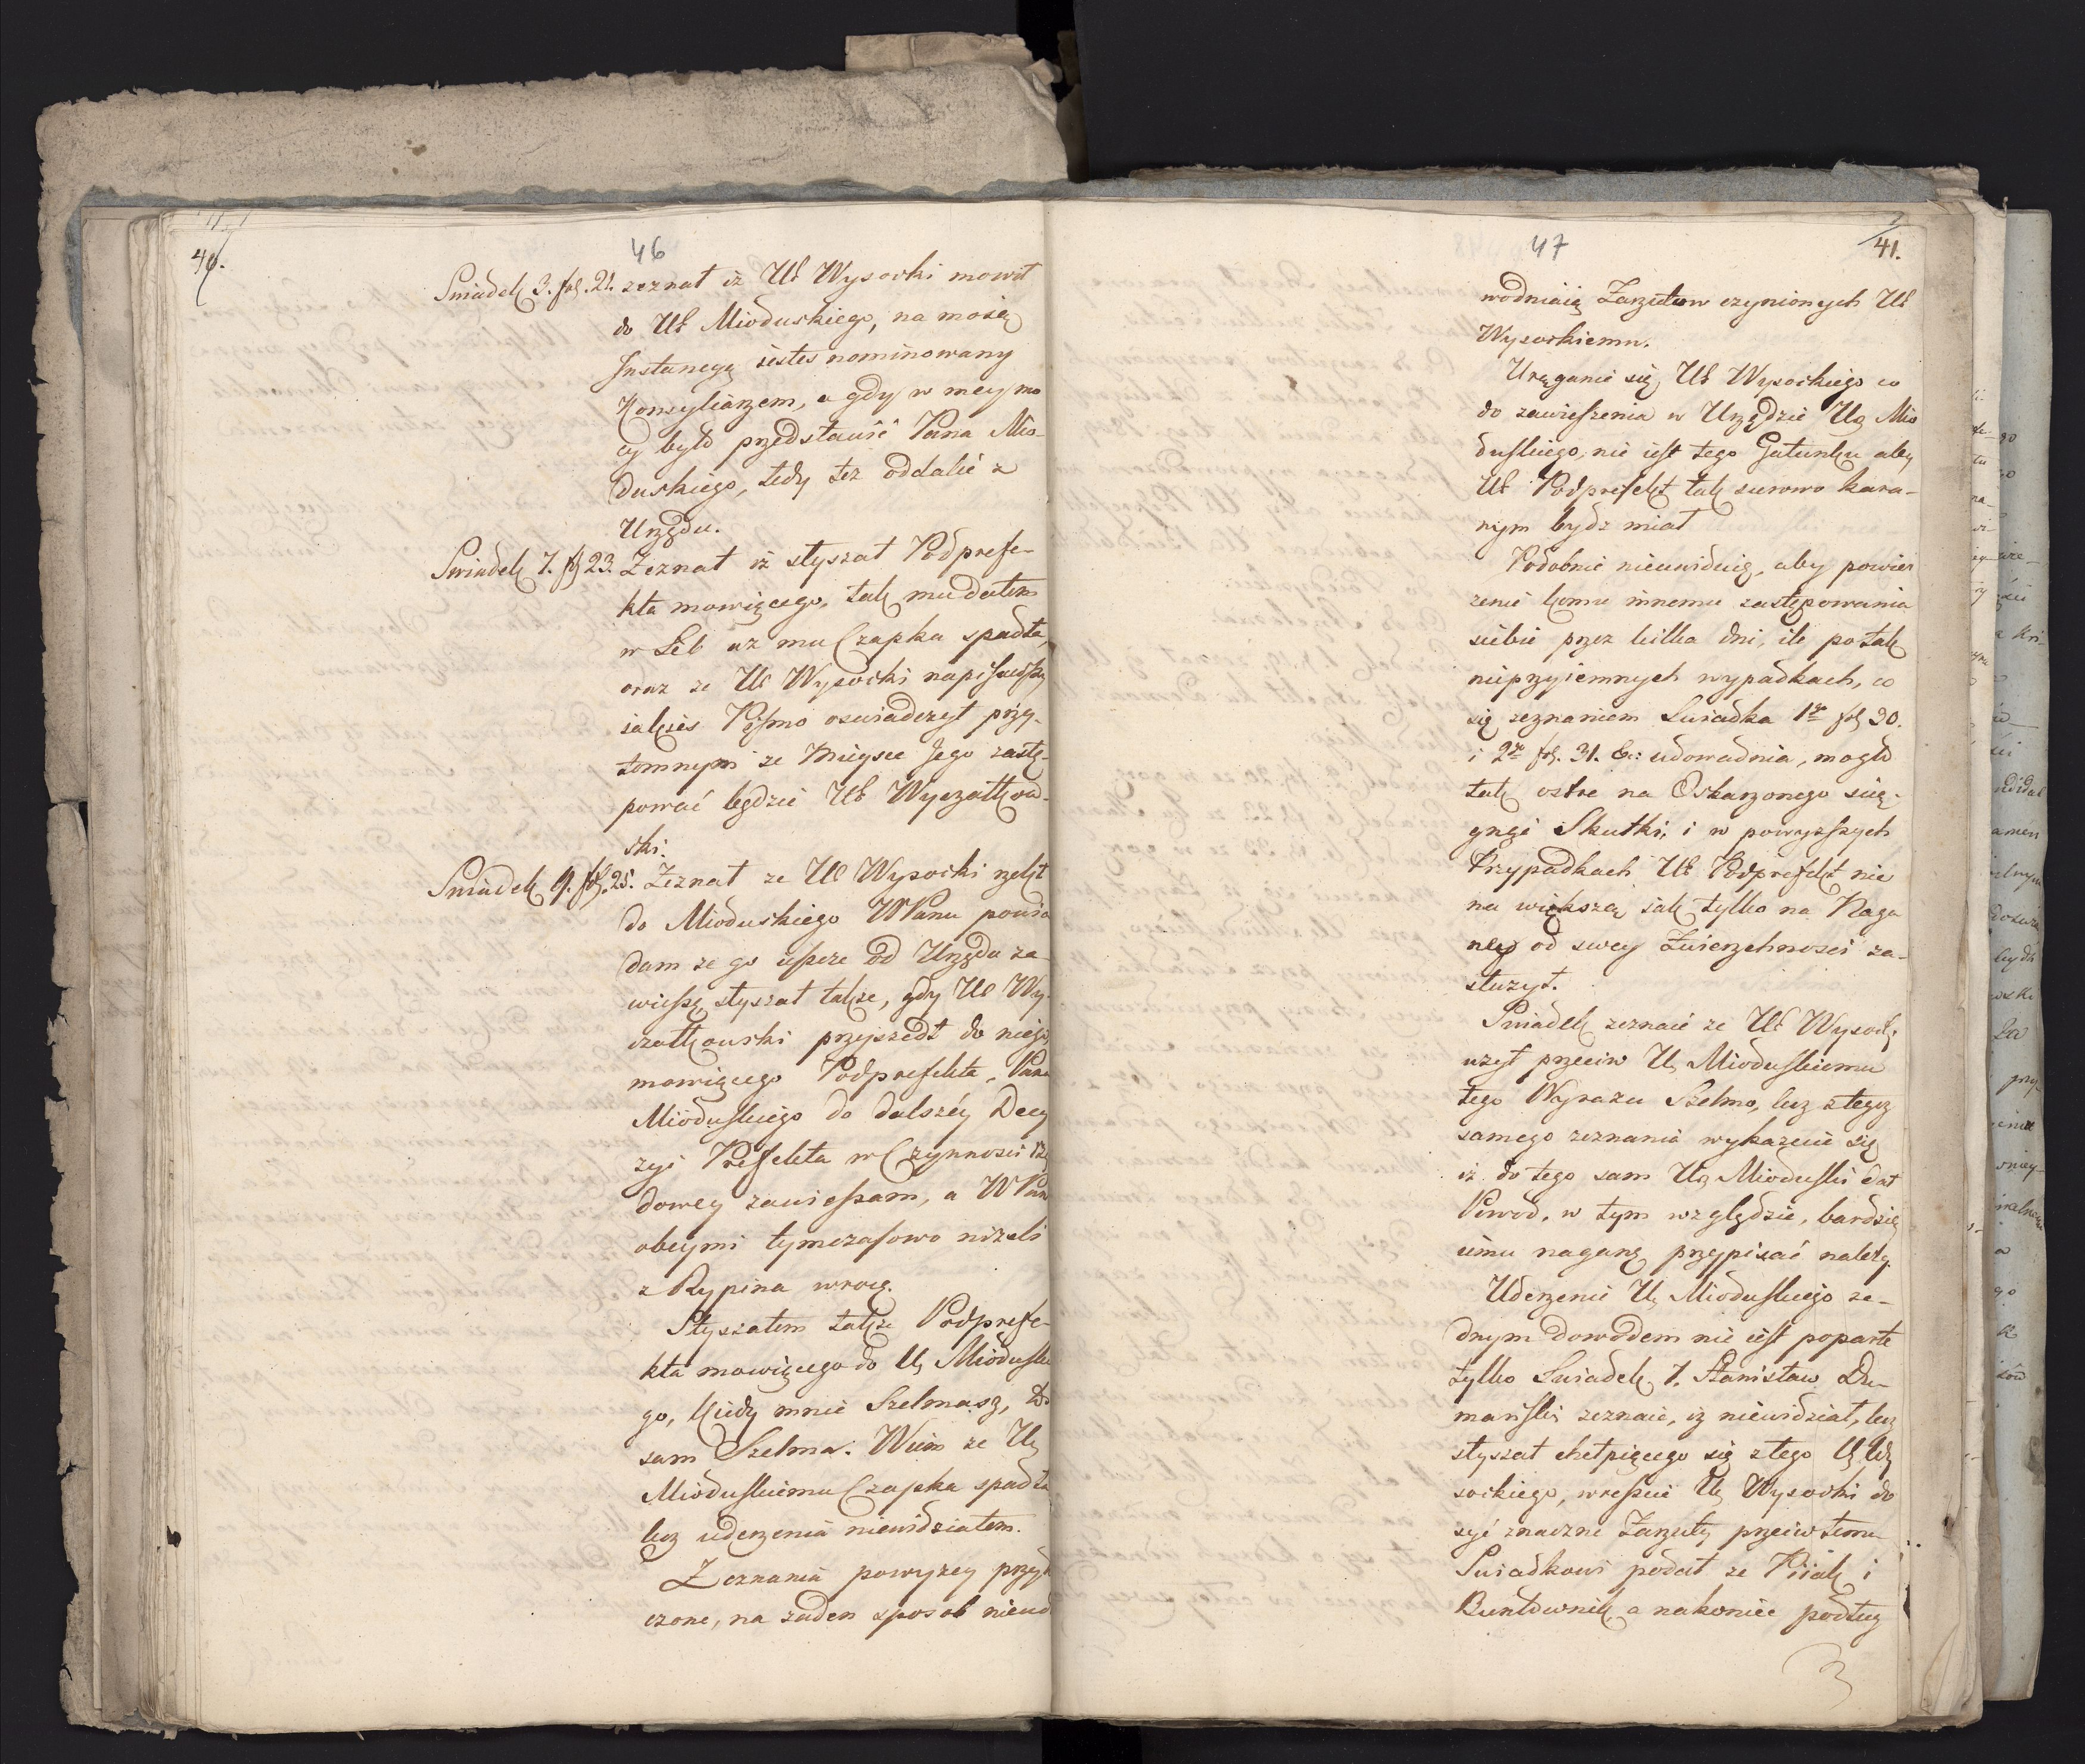 46
40.
Swiadek 3. fol. 21. zeznał iż Uł Wysocki mowił
do Uł Mioduskiego, na moię
Instancyą iestes nominowany
Konsyliarzem, a gdy w mey mo
cy było przedstawić Pana Mio-
duskiego, tedy tez oddalić z
Urzędu.
Swiadek 7. fol 23. Zeznał iż słyszał Podprefe-
kta mowiącego, tak mu dałem
w Łeb az mu Czapka spadła,
oraz ze Uł Wysocki napisawszy
iakies Pismo oswiadczył przy-
tomnym ze Mieysce Jego zastę-
pować będzie Uł Wyczałkow-
ski.
Swiadek 9. fol. 25. Zeznał ze Uł Wysocki rzekł
do Mioduskiego WPanu powia
dam ze go ieszcze od Urzędu za-
wieszę, słyszał także, gdy Uł Wy-
czałkowski przyszedł do niego,
mowiącego Podprefekta, Pana
Mioduskiego do dalszéy Decy
zyi Prefekta w Czynnosci Urzę
dowey zawieszam, a WPan
obeymi tymczasowo nizeli
z Rypina wrocę.
Słyszałem także Podprefe-
kta mowiącego do Ur Miodusk
go, kiedy mnie Szelmasz, to
sam Szelma. Wiem ze Ur
Mioduskiemu Czapka spadła
lecz uderzenia niewidziałem.
Zeznania powyzey przyto
czone, na zaden sposob nieud
47
41.
wodniaią Zarzutow czynionych Uł
Wysockiemu.
Urąganie się Uł Wysockiego co
do zawieszenia w Urzędzie Ur Mio
duskiego, nie iest tego Gatunku aby
Uł Podprefekt tak surowo kara-
nym bydz miał
Podobnie niewidzię, aby powier
zenie komu innemu zastępowania
siebie przez kilka dni, ile po tak
nieprzyiemnych wypadkach, co
się zeznaniem Swiadka 1go fol 30.
i 2go fol. 31. b: udowadnia, mogło
tak ostre na Oskarzonego scią-
gnąć Skutki, i w powyzszych
Przypadkach Uł Podprefekt nie
na większą iak tylko na Naga
nę od swey Zwierzchnosci za-
służył.
Swiadek zeznaie ze Uł Wysock:
uzył przeciw Ur Mioduskiemu
tego Wyrazu Szelmo, lecz z tegoz
samego zeznania wykazuie się
iż do tego sam Ur Mioduski dał
Powod, w tym względzie, bardziey
iemu naganę przypisać nalezy.
Uderzenie Ur Mioduskiego za-
dnym dowodem nie iest poparte
tylko Swiadek 7. Stanisław Du-
mański zeznaie, iz niewidział, lecz
słyszał chełpiącego się z tego Ur Wy
sockiego, wreszcie Ur Wysocki do
syć znaczne Zarzuty przeciw temu
Swiadkowi podał ze Piiak i
Buntownik, a nakoniec podług